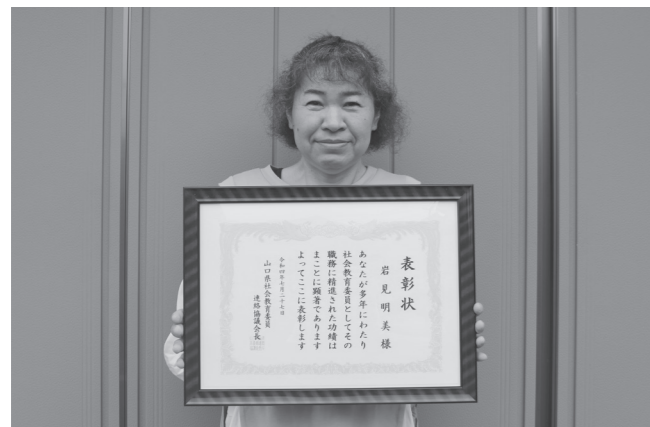 表彰状
岩見明美様
あなたが多年にわたり
社会教育委員としてその
職務に精進された功績は
まことに顕著であります
よってここに表彰します
令和四年七月二十七日
山口県社会教育委員
連絡協議会長